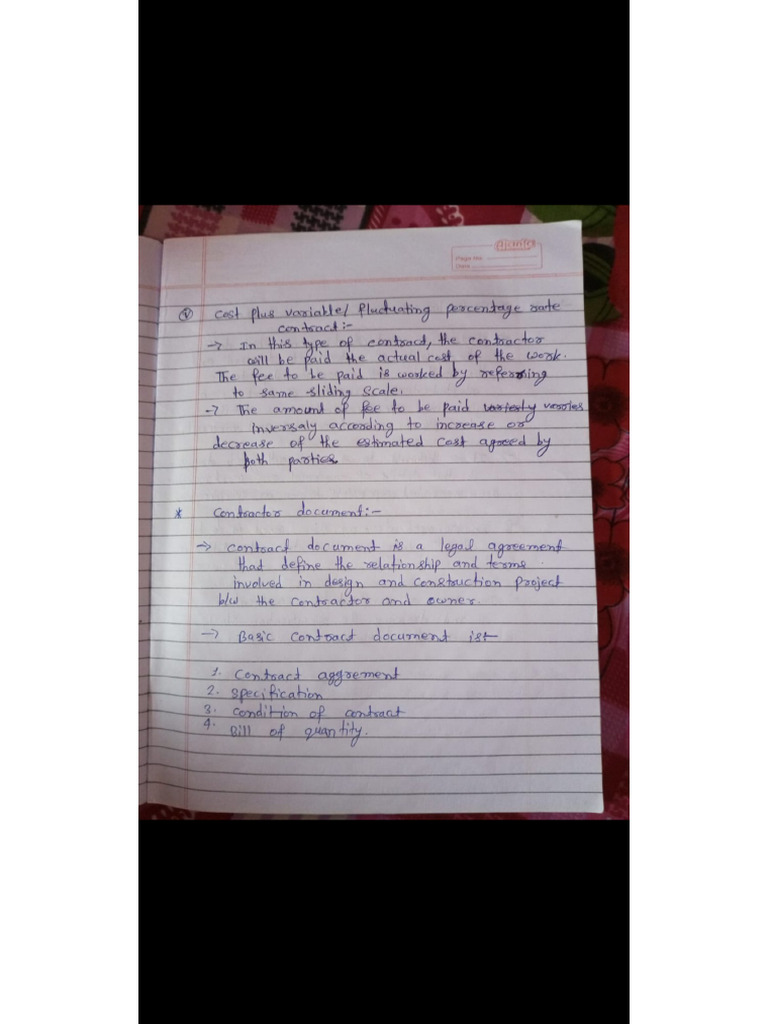 Ajanta
Page No.
Date
(v) Cost plus variable/ fluctuating percentage rate
contract:-
→ In this type of contract, the contractor
will be paid the actual cost of the work.
The fee to be paid is worked by referring
to same sliding scale.
→ The amount of fee to be paid varies
Inversaly according to increase or
decrease of the estimated cost agreed by
both parties
* Contractor document:-
→ Contract document is a legal agreement
that define the relationship and terms
involved in design and construction project
b/w the contractor and owner.
→ Basic contract document is:-
1. Contract aggrement
2. Specification
3. Condition of contract
4. Bill of quantity.